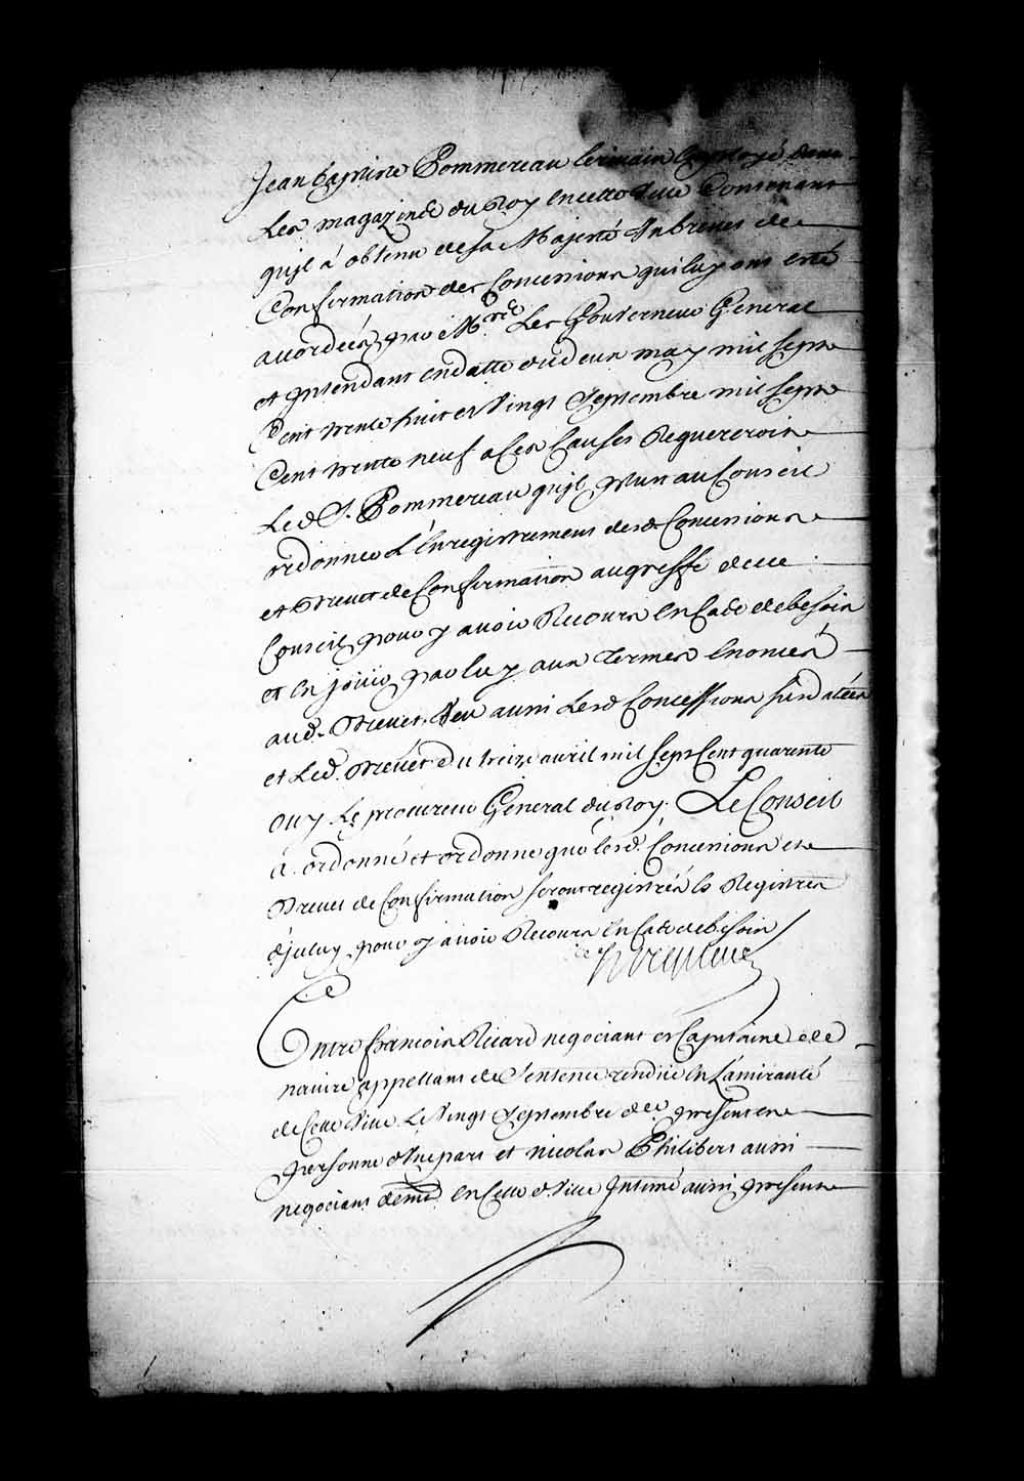 Jean baptiste Pommereau Ecrivain Employé dans
Les magazins du Roy En cette Ville Contenant
quil à obtenu de sa Majesté Un brevet de
Confirmation des Concessions qui luy ont esté
accordées par Mrs Les Gouverneur General
et Intendant en datte du deux may mil sept
Cent trente huit et Vingt Septembre mil sept
Cent trente neuf a Ces Causes Requereroit
Led. S. Pommereau quil plut au Conseil
ordonner L'Enregistrement desd. Concessions
et Brevet de Confirmation au greffe de ce
Conseil pour y avoir Recours En Cas de besoin
et En jouir par luy aux termes Enoncés
aud. Brevet, Veu aussi Lesd. Concessions susdatées
et Led. Brevet du treize avril mil sept Cent quarente
Ouy Le procureur General du Roy. Le Conseil
à ordonné et ordonne que lesd. Concessions et
Brevet de Confirmation seront registrés Es Registres
d'jceluy pour y avoir Recours En Cas de besoin
Hocquart
Entre francois Ricard negociant et Capitaine de
navire appellant de Sentence rendüe En L'amirauté
de Cette Ville Le Vingt Septembre der. present en
personne d'Une part et nicolas Philibert aussi
negociant demt. En Cette d. Ville Intimé aussi present